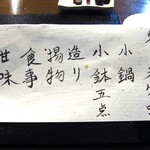 小鍋
小鉢五点
造り
揚物
食事
甘味